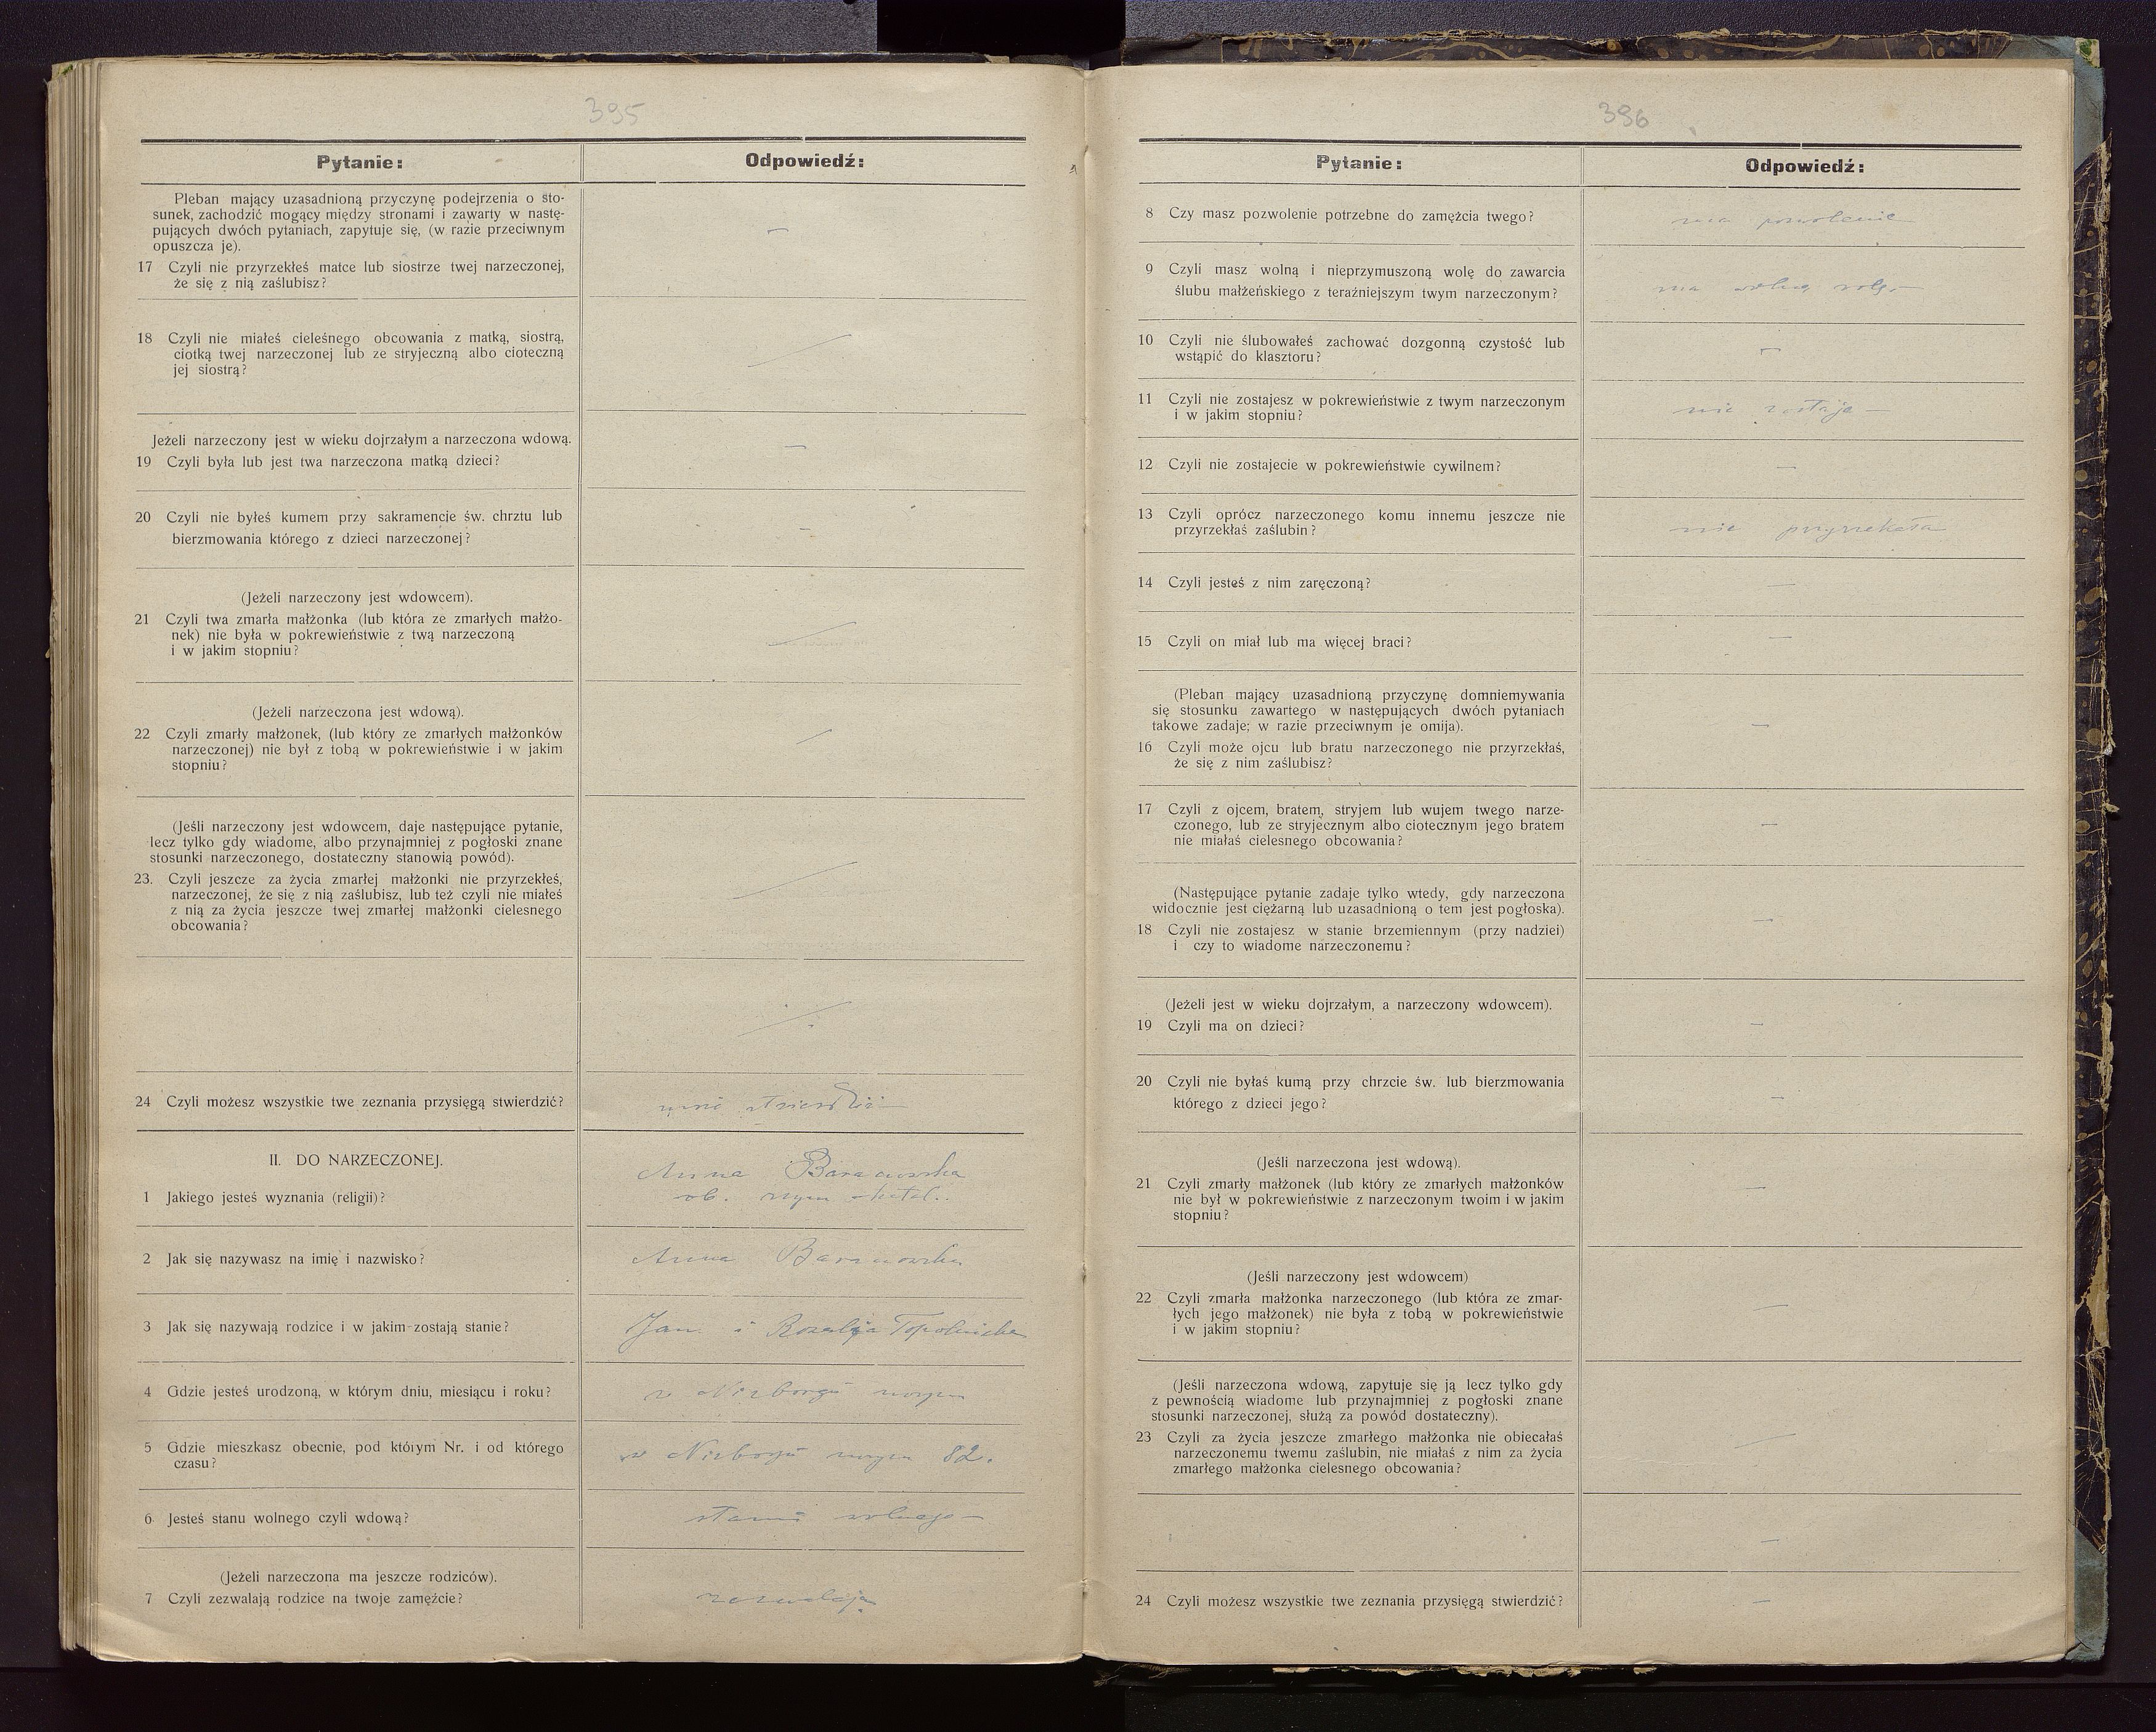 395
Pytanie:
Odpowiedź:
Pleban mający uzasadnioną przyczynę podejrzenia o sto-
sunek, zachodzić mogący między stronami i zawarty w nastę-
pujących dwóch pytaniach, zapytuje się, (w razie przeciwnym
opuszcza je).
—
17 Czyli nie przyrzekłeś matce lub siostrze twej narzeczonej,
że się z nią zaślubisz?
18 Czyli nie miałeś cieleśnego obcowania z matką, siostrą,
ciotką twej narzeczonej lub ze stryjeczną albo cioteczną
jej siostrą?
Jeżeli narzeczony jest w wieku dojrzałym a narzeczona wdową.
—
19 Czyli była lub jest twa narzeczona matką dzieci?
20 Czyli nie byłeś kumem przy sakramencie św. chrztu lub
bierzmowania którego z dzieci narzeczonej?
—
(Jeżeli narzeczony jest wdowcem).
21 Czyli twa zmarła małżonka (lub która ze zmarłych małżo-
nek) nie była w pokrewieństwie z twą narzeczoną
i w jakim stopniu?
(Jeżeli narzeczona jest wdową).
22 Czyli zmarły małżonek, (lub który ze zmarłych małżonków
narzeczonej) nie był z tobą w pokrewieństwie i w jakim
stopniu?
(Jeśli narzeczony jest wdowcem, daje następujące pytanie,
lecz tylko gdy wiadome, albo przynajmniej z pogłoski znane
stosunki narzeczonego, dostateczny stanowią powód).
23. Czyli jeszcze za życia zmarłej małżonki nie przyrzekłeś,
narzeczonej, że się z nią zaślubisz, lub też czyli nie miałeś
z nią za życia jeszcze twej zmarłej małżonki cielesnego
obcowania?
24 Czyli możesz wszystkie twe zeznania przysięgą stwierdzić?
II. DO NARZECZONEJ.
Anna Baranowska
1 Jakiego jesteś wyznania (religii)?
ob. rzym. katol.
2 Jak się nazywasz na imię i nazwisko?
Anna Baranowska
3 Jak się nazywają rodzice i w jakim zostają stanie?
Jan i Rozalja Topolnicka
4 Gdzie jesteś urodzoną, w którym dniu, miesiącu i roku?
w Niżborgu nowym
5 Gdzie mieszkasz obecnie, pod którym Nr. i od którego
czasu?
w Niżborgu nowym 82.
6 Jesteś stanu wolnego czyli wdową?
stanu wolnego —
(Jeżeli narzeczona ma jeszcze rodziców).
7 Czyli zezwalają rodzice na twoje zamężcie?
zezwalają
396
Pytanie:
Odpowiedź:
8 Czy masz pozwolenie potrzebne do zamężcia twego?
ma pozwolenie
9 Czyli masz wolną i nieprzymuszoną wolę do zawarcia
ślubu małżeńskiego z teraźniejszym twym narzeczonym?
ma wolną wolę —
10 Czyli nie ślubowałeś zachować dozgonną czystość lub
wstąpić do klasztoru?
—
11 Czyli nie zostajesz w pokrewieństwie z twym narzeczonym
i w jakim stopniu?
nie zostaje —
12 Czyli nie zostajecie w pokrewieństwie cywilnem?
—
13 Czyli oprócz narzeczonego komu innemu jeszcze nie
przyrzekłaś zaślubin?
nie przyrzekała
14 Czyli jesteś z nim zaręczoną?
—
15 Czyli on miał lub ma więcej braci?
—
(Pleban mający uzasadnioną przyczynę domniemywania
się stosunku zawartego w następujących dwóch pytaniach
takowe zadaje; w razie przeciwnym je omija).
—
16 Czyli może ojcu lub bratu narzeczonego nie przyrzekłaś,
że się z nim zaślubisz?
17 Czyli z ojcem, bratem, stryjem lub wujem twego narze-
czonego, lub ze stryjecznym albo ciotecznym jego bratem
nie miałaś cielesnego obcowania?
—
(Następujące pytanie zadaje tylko wtedy, gdy narzeczona
widocznie jest ciężarną lub uzasadnioną o tem jest pogłoska).
—
18 Czyli nie zostajesz w stanie brzemiennym (przy nadziei)
i czy to wiadome narzeczonemu?
(Jeżeli jest w wieku dojrzałym, a narzeczony wdowcem).
19 Czyli ma on dzieci?
—
20 Czyli nie byłaś kumą przy chrzcie św. lub bierzmowania
którego z dzieci jego?
—
(Jeśli narzeczona jest wdową).
21 Czyli zmarły małżonek (lub który ze zmarłych małżonków
nie był w pokrewieństwie z narzeczonym twoim i w jakim
stopniu?
—
(Jeśli narzeczony jest wdowcem)
22 Czyli zmarła małżonka narzeczonego (lub która ze zmar-
łych jego małżonek) nie była z tobą w pokrewieństwie
i w jakim stopniu?
—
(Jeśli narzeczona wdową, zapytuje się ją lecz tylko gdy
z pewnością wiadome lub przynajmniej z pogłoski znane
stosunki narzeczonej, służą za powód dostateczny).
23 Czyli za życia jeszcze zmarłego małżonka nie obiecałaś
narzeczonemu twemu zaślubin, nie miałaś z nim za życia
zmarłego małżonka cielesnego obcowania?
—
24 Czyli możesz wszystkie twe zeznania przysięgą stwierdzić?
—